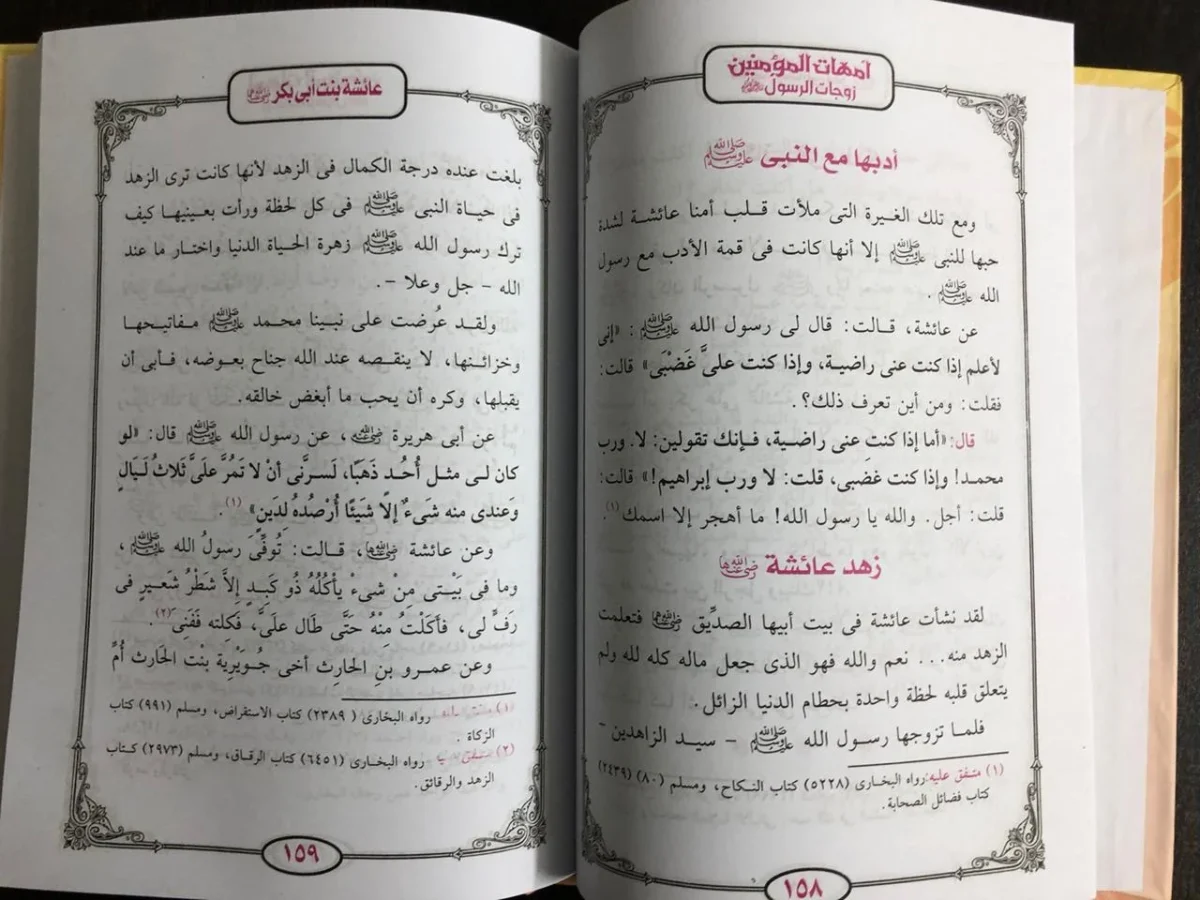 أمهات المؤمنين
زوجات الرسول ﷺ
أدبها مع النبى ﷺ
ومع تلك الغيرة التى ملأت قلب أمنا عائشة لشدة
حبها للنبى ﷺ إلا أنها كانت فى قمة الأدب مع رسول
الله ﷺ .
عن عائشة، قالت: قال لى رسول الله ﷺ: «إنى
لأعلم إذا كنت عنى راضية، وإذا كنت علىَّ غَضْبَى» قالت:
فقلت: ومن أين تعرف ذلك؟.
قال: «أما إذا كنتِ عنى راضية، فإنك تقولين: لا. ورب
محمد! وإذا كنت غضبى، قلت: لا ورب إبراهيم!» قالت:
قلت: أجل. والله يا رسول الله! ما أهجر إلا اسمك (١).
زهد عائشة رضي الله عنها
لقد نشأت عائشة فى بيت أبيها الصدِّيق رضي الله عنهما فتعلمت
الزهد منه... نعم والله فهو الذى جعل ماله كله لله ولم
يتعلق قلبه لحظة واحدة بحطام الدنيا الزائل.
فلما تزوجها رسول الله ﷺ – سيد الزاهدين –
(١) متفق عليه: رواه البخارى (٥٢٢٨) كتاب النكاح، ومسلم (٨٠) (٢٤٣٩)
كتاب فضائل الصحابة.
١٥٨
عائشة بنت أبى بكر رضي الله عنها
بلغت عنده درجة الكمال فى الزهد لأنها كانت ترى الزهد
فى حياة النبى ﷺ فى كل لحظة ورأت بعينيها كيف
ترك رسول الله ﷺ زهرة الحياة الدنيا واختار ما عند
الله – جل وعلا –.
ولقد عُرضت على نبينا محمد ﷺ مفاتيحها
وخزائنها، لا ينقصه عند الله جناح بعوضه، فأبى أن
يقبلها، وكره أن يحب ما أبغض خالقه.
عن أبى هريرة رضي الله عنه، عن رسول الله ﷺ قال: «لو
كان لى مثل أُحُد ذَهَبًا، لَسرنَّى أنْ لا تَمُرَّ علَىَّ ثَلاثُ لَيَالٍ
وَعندى منه شَىءٌ إلاَّ شَيئًا أُرْصدُه لِدَينٍ» (١).
وعن عائشة رضي الله عنها، قالت: تُوفِّىَ رَسولُ الله ﷺ،
وما فى بَيْتى مِنْ شىءْ يأْكُلُهُ ذُو كَبِدٍ إلاَّ شَطْرُ شَعيرٍ فى
رَفٍّ لى، فأكَلْتُ مِنْهُ حَتَّى طَال علَىَّ، فَكِلته فَفَنِىَ (٢).
وعن عمرو بنِ الحارث أخى جُوَيْرِيةَ بنْت الحَارث أُمِّ
(١) رواه البخارى (٢٣٨٩) كتاب الاستقراض، ومسلم (٩٩١) كتاب
الزكاة .
(٢) رواه البخارى (٦٤٥١) كتاب الرقاق، ومسلم (٢٩٧٣) كتاب
الزهد والرقائق.
١٥٩